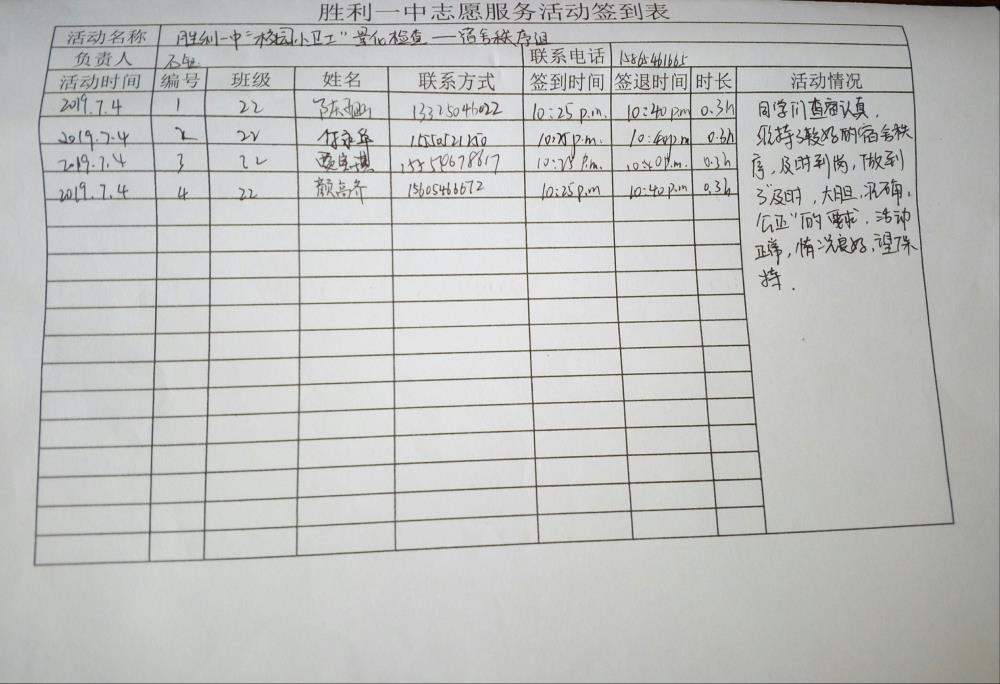 胜利一中志愿服务活动签到表
活动名称 胜利一中"校园小卫士"量化检查——宿舍秩序组
负责人 联系电话 15865461665
活动时间 编号 班级 姓名 联系方式 签到时间 签退时间 时长 活动情况
2019.7.4 1 22 13325046022 10:25 p.m. 10:40 p.m 0.3h
2019.7.4 2 22 10:25 p.m. 10:40 p.m 0.3h
2019.7.4 3 22 10:25 p.m. 10:40 p.m. 0.3h
2019.7.4 4 22 颜高齐 15605466672 10:25 p.m 10:40 p.m. 0.3h
同学们查宿认真,
维持了较好的宿舍秩
序,及时到岗,做到
了"及时,大胆,准确,
公正"的要求.活动
正常,情况良好,望保
持.